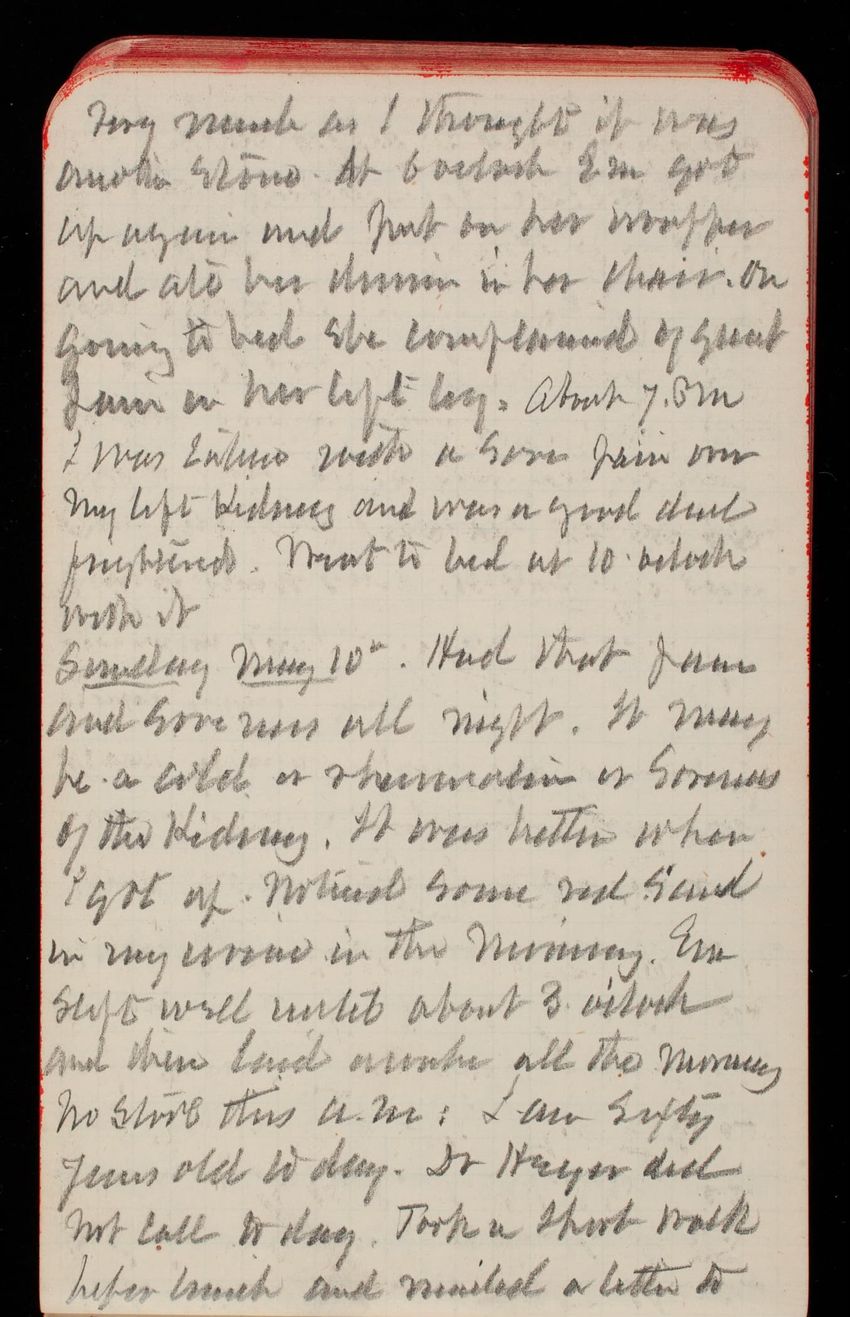 Very much as I thought it was
another Stone. At 6 oclock Em got
up again and put on her wrapper
and ate her dinner in her chair. On
going to bed She complained of great
pain in her left leg. About 7. PM
I was taken with a Sore pain over
my left Kidney and was a good deal
frightened. Went to bed at 10 oclock
with it
Sunday May 10". Had that pain
and Soreness all night. It may
be a cold or rheumatism or Soreness
of the Kidney. It was better when
I got up. Noticed Some red Sand
in my urine in the Morning. Em
Slept well until about 3 oclock
and then laid awake all the Morning
No Stool this a.m: I am Sixty
Years old to day. Dr Heyer did
Not call to day. Took a Short walk
before lunch and mailed a letter to